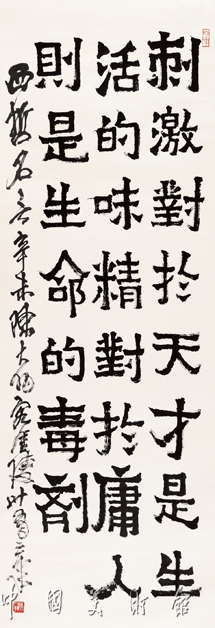 刺激對於天才是生
活的味精對於庸人
則是生命的毒剂
西哲名言辛未陳大羽
中國美術館